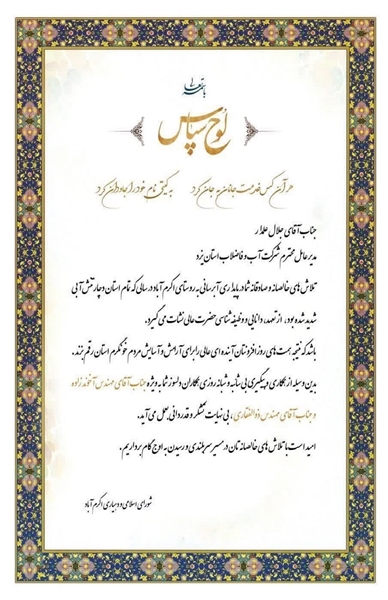 باسمه تعالی
لوح سپاس
هر آن کس خدمت جانان به جان کرد به گیتی نام خود را جاودان کرد
جناب آقای جلال علمدار
مدیرعامل محترم شرکت آب و فاضلاب استان یزد
تلاش های خالصانه و صادقانه شما در پایداری آبرسانی به روستای اکرم آباد در سالی که تمام استان دچار تنش آبی
شدید شده بود، از تعهد، دانایی و وظیفه شناسی حضرت عالی نشات می گیرد.
باشد که نتیجه همت های روز افزونتان آینده ای عالی را برای آرامش و آسایش مردم خونگرم استان رقم بزند.
بدین وسیله از همکاری و پیگیری بی شائبه و شبانه روزی همکاران دلسوز شما به ویژه جناب آقای مهندس آخوندزاده
و جناب آقای مهندس ذوالفقاری، بی نهایت تشکر و قدردانی بعمل می آید.
امید است با تلاش های خالصانه تان در مسیر سربلندی و رسیدن به اوج گام برداریم.
شورای اسلامی و دهیاری اکرم آباد